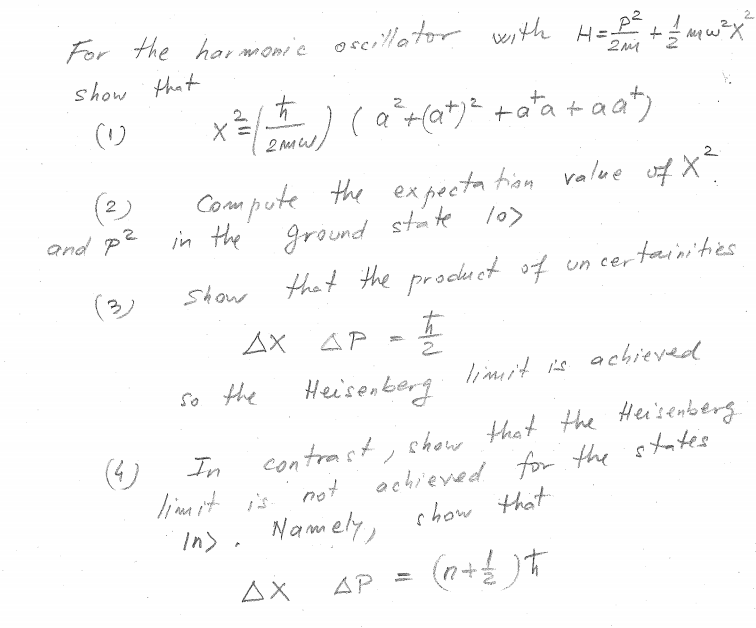 For the harmonic oscillator with H = P²/2m + 1/2 mω²X²
show that
(1) X² = (ħ/2mω) (a² + (a†)² + a†a + aa†)
(2) Compute the expectation value of X²
and P² in the ground state |0>
(3) Show that the product of uncertainities
ΔX ΔP = ħ/2
so the Heisenberg limit is achieved
(4) In contrast, show that the Heisenberg
limit is not achieved for the states
|n>. Namely, show that
ΔX ΔP = (n+1/2)ħ